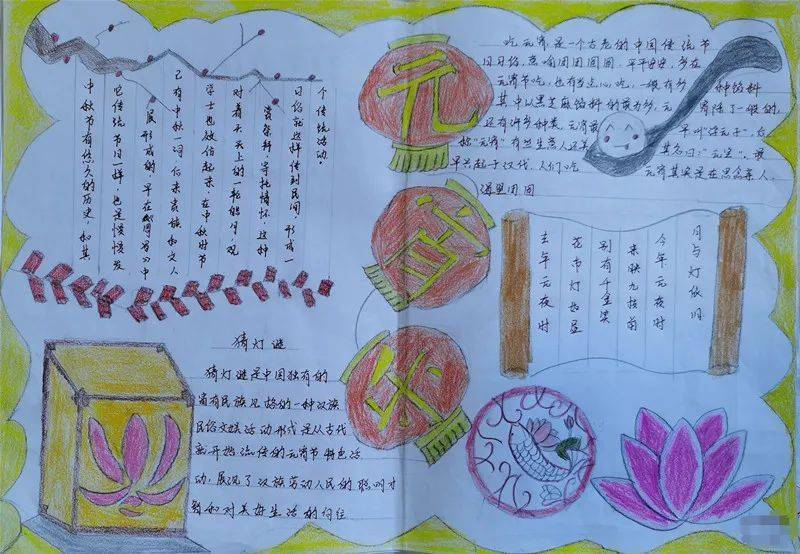 中秋节有悠久的历史，和其
它传统节日一样，也是慢慢发
展形成的，早在《周》中
已有中秋一词 后来贵族和文人
学士也效仿起来，在中秋时节
对着天天上的一轮皓月，观
赏祭拜，寄托情怀，这种
习俗就这样传到民间，形成一
个传统活动。
元
宵
节
吃元宵是一个古老的中国传统节
日习俗，意喻团团圆圆，平平安安，多在
元宵节吃，也有当点心吃，一般有多 种馅料
其中以黑芝麻馅料的最为多，元 宵除了一般的，
还有许多种类，元宵最 早叫"浮元子"，后
称"元宵"有些生意人还美 其名曰："元宝"，最
早兴起于汉代，人们吃 元宵其实是在思念亲人，
渴望团圆
去年元夜时
花市灯如昼
别有千金笑
来映九枝前
今年元夜时
月与灯依旧
猜灯谜
猜灯谜是中国独有的
富有民族风格的一种汉族
民俗文娱活动形式是从古代
就开始流传的元宵节特色活
动，展现了汉族劳动人民的聪明才
智和对美好生活的向往